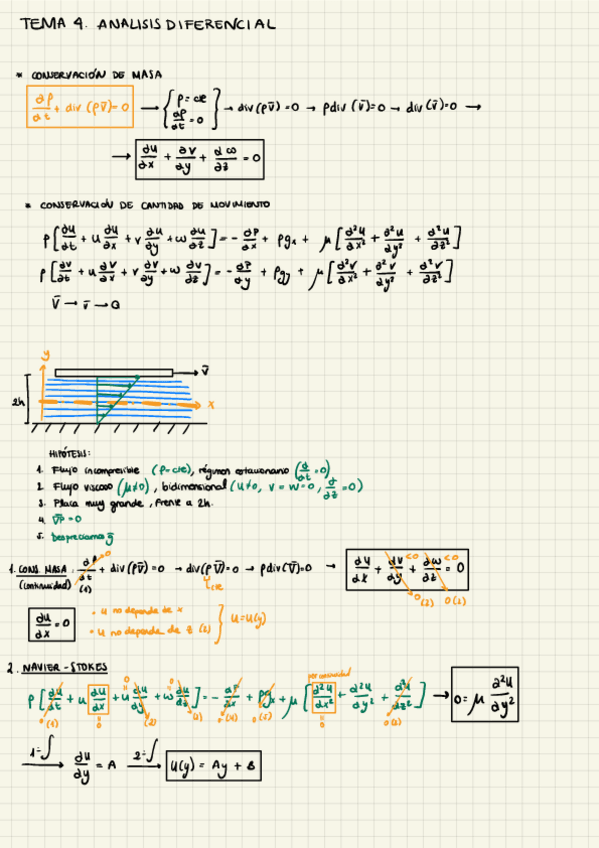 TEMA 4. ANALISIS DIFERENCIAL
* CONSERVACIÓN DE MASA
∂ρ/∂t + div (ρv̄) = 0 → { ρ = cte, ∂ρ/∂t = 0 } → div (ρv̄) = 0 → ρ div (v̄) = 0 → div (v̄) = 0 →
→ ∂u/∂x + ∂v/∂y + ∂ω/∂z = 0
* CONSERVACIÓN DE CANTIDAD DE MOVIMIENTO
ρ[∂u/∂t + u ∂u/∂x + v ∂u/∂y + ω ∂u/∂z] = - ∂P/∂x + ρgx + μ[∂²u/∂x² + ∂²u/∂y² + ∂²u/∂z²]
ρ[∂v/∂t + u ∂v/∂x + v ∂v/∂y + ω ∂v/∂z] = - ∂P/∂y + ρgy + μ[∂²v/∂x² + ∂²v/∂y² + ∂²v/∂z²]
V̄ → v̄ → Q
y
V̄
2h
x
HIPÓTESIS:
1. Flujo incompresible (ρ=cte), régimen estacionario (∂/∂t = 0)
2. Flujo viscoso (μ≠0), bidimensional (u≠0, v = w = 0, ∂/∂z = 0)
3. Placa muy grande, frente a 2h.
4. ∇P = 0
5. Despreciamos g̅
1. CONS. MASA: ∂ρ/∂t + div (ρv̄) = 0 → div (ρv̄) = 0 → ρ div (v̄) = 0 → ∂u/∂x + ∂v/∂y + ∂ω/∂z = 0
(continuidad) (1) cte 0 (2) 0 (2)
∂u/∂x = 0
• u no depende de x
• u no depende de z (2)
} u = u(y)
2. NAVIER-STOKES
por continuidad
ρ[∂u/∂t + u ∂u/∂x + v ∂u/∂y + ω ∂u/∂z] = - ∂P/∂x + ρgx + μ[∂²u/∂x² + ∂²u/∂y² + ∂²u/∂z²] → 0 = μ ∂²u/∂y²
0 (1) 0 (2) (2) 0 (4) 0 (5) 0 0 (2)
1ª ∫ → ∂u/∂y = A 2ª ∫ → u(y) = Ay + B